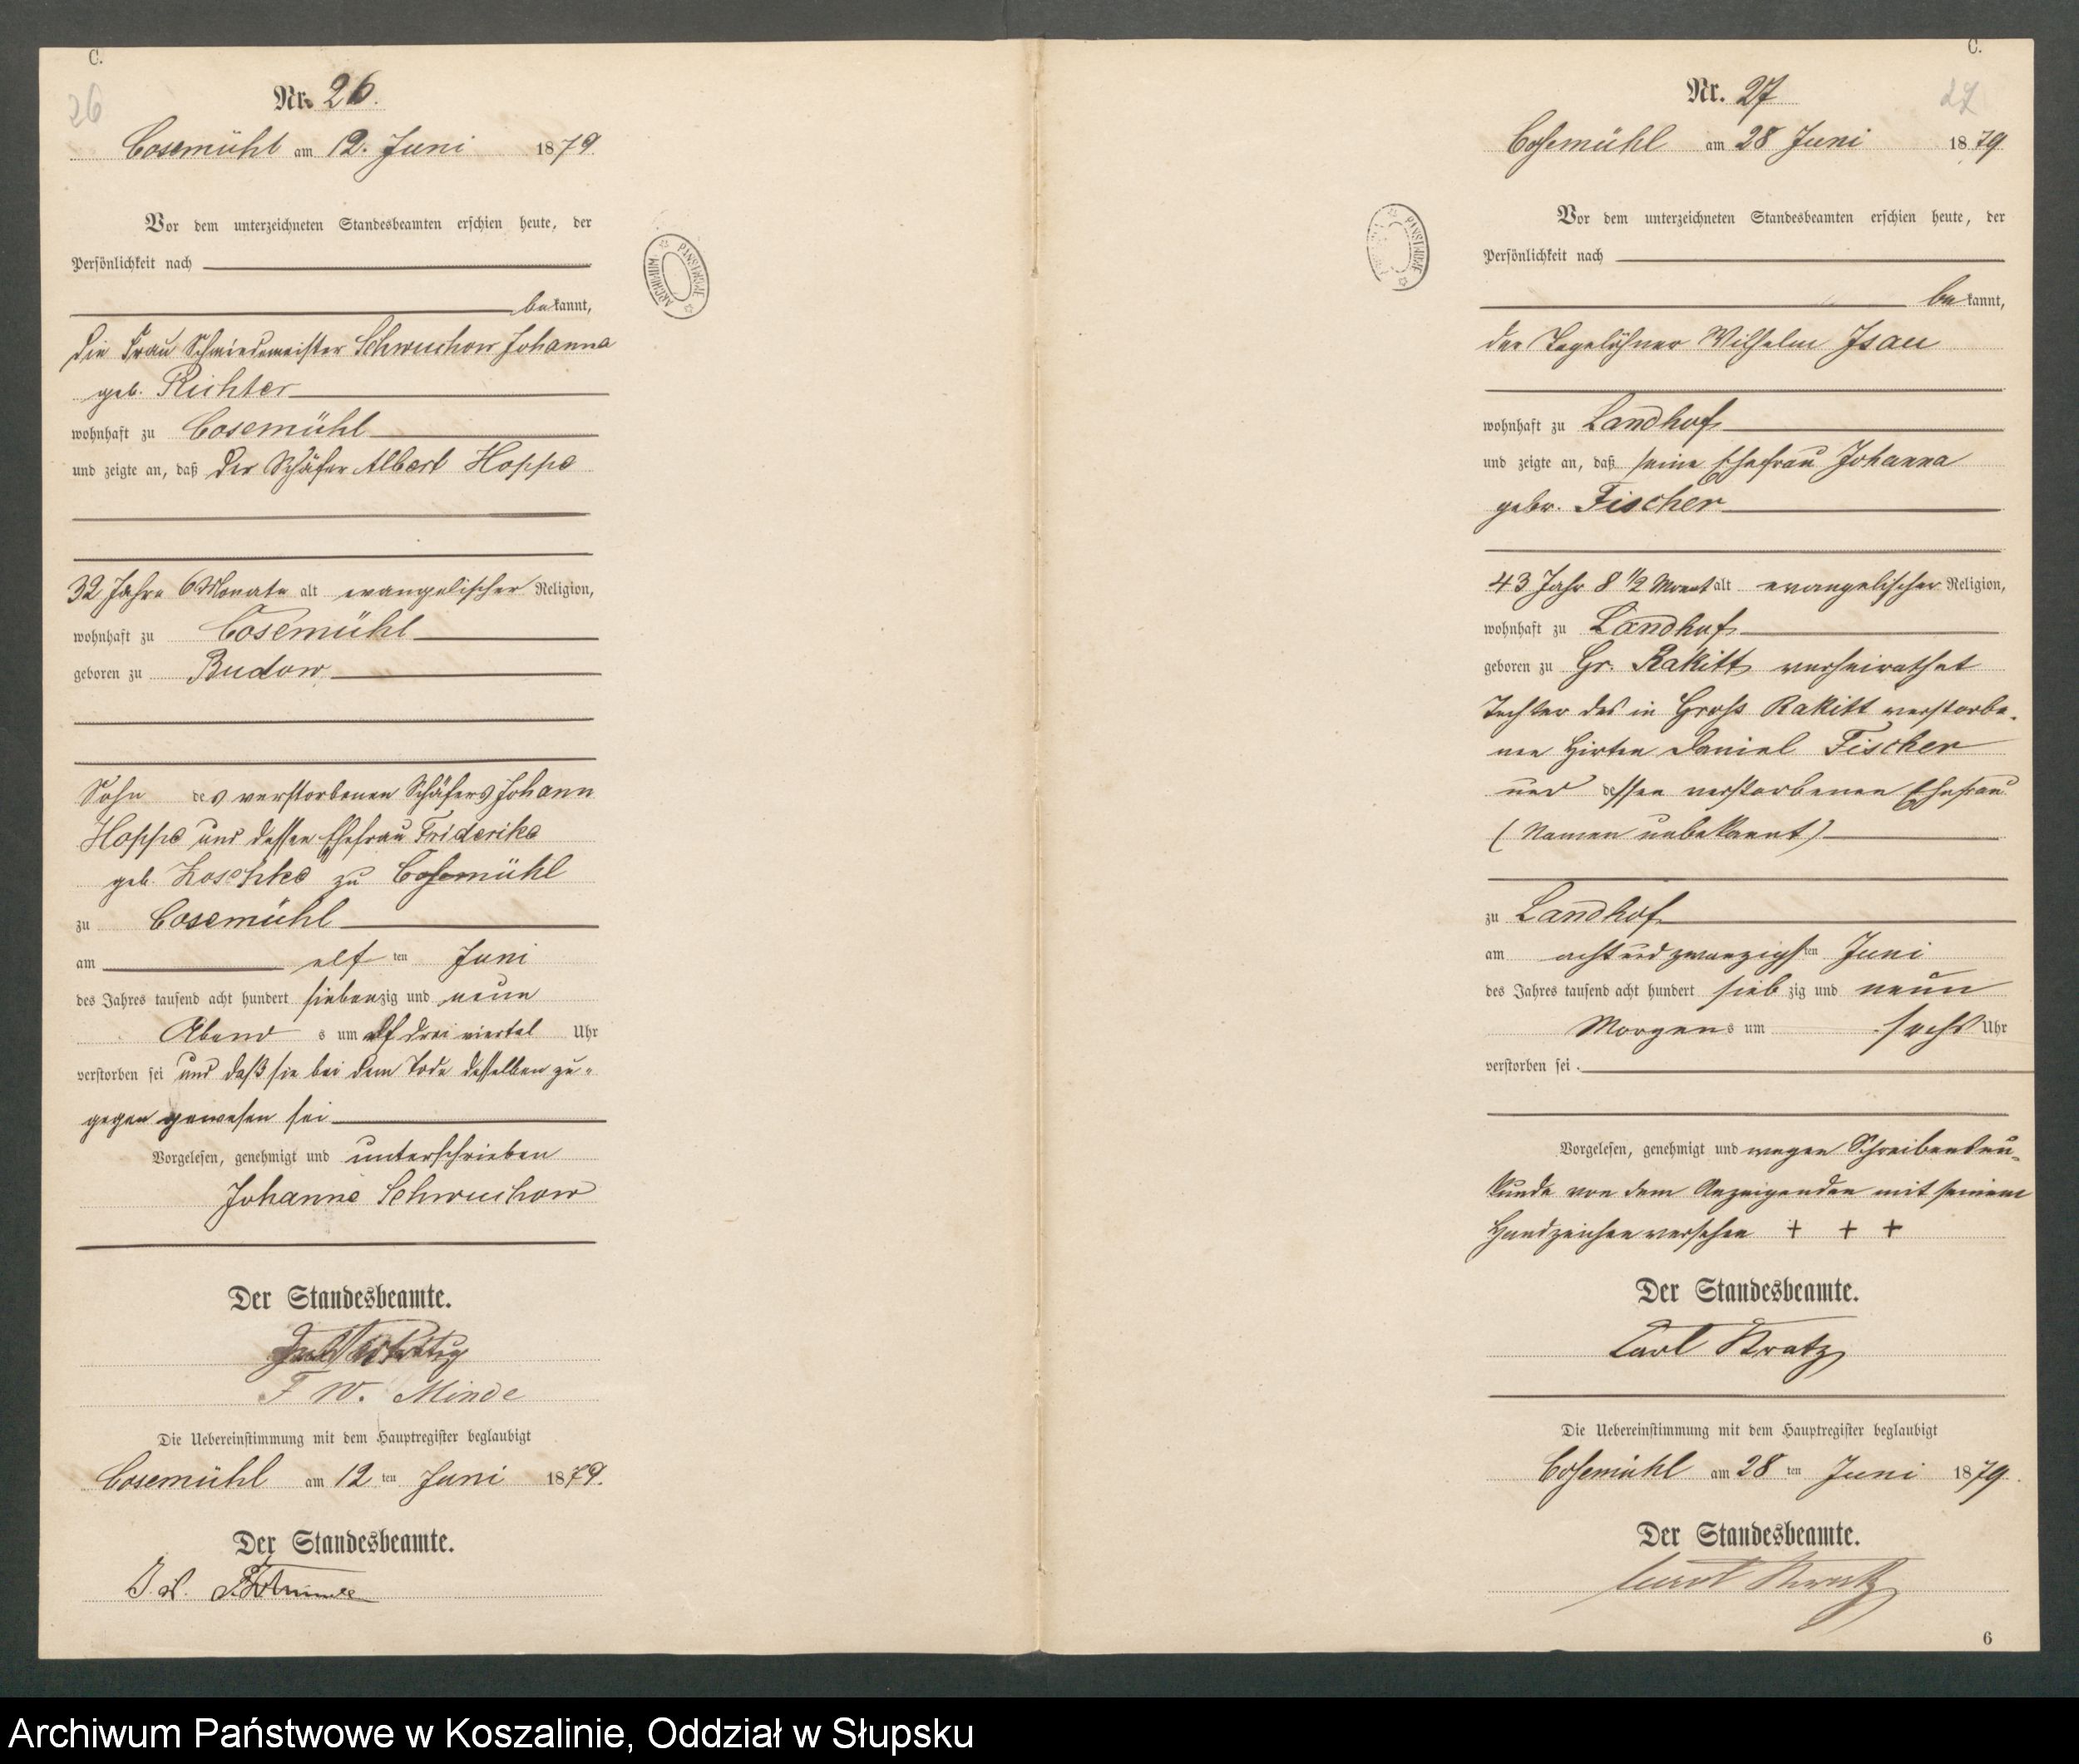 C.
26
Nr. 26.
Cosemühl am 12. Juni 1879
Vor dem unterzeichneten Standesbeamten erschien heute, der
Persönlichkeit nach
bekannt,
die Frau Schmiedemeister Schwuchow Johanna
geb. Richter
wohnhaft zu Cosemühl
und zeigte an, daß der Schäfer Albert Hoppe
32 Jahre 6 Monate alt evangelischer Religion,
wohnhaft zu Cosemühl
geboren zu Budow
Sohn des verstorbenen Schäfers Johann
Hoppe und dessen Ehefrau Friderike
geb. zu Cosemühl
zu Cosemühl
am elf ten Juni
des Jahres tausend acht hundert siebenzig und neun
Abend s um elf drei viertel Uhr
verstorben sei und daß sie bei dem Tode desselben zu-
gegen gewesen sei
Vorgelesen, genehmigt und unterschrieben
Johanne Schwuchow
Der Standesbeamte.
F W. Minde
Die Uebereinstimmung mit dem Hauptregister beglaubigt
Cosemühl am 12 ten Juni 1879.
Der Standesbeamte.
ARCHIWUM PAŃSTWOWE
C.
27
Nr. 27
Cosemühl am 28 Juni 1879
Vor dem unterzeichneten Standesbeamten erschien heute, der
Persönlichkeit nach
bekannt,
der Tagelöhner Wilhelm Isau
wohnhaft zu Landhof
und zeigte an, daß seine Ehefrau Johanna
gebor. Fischer
43 Jahr 8 1/2 Monat alt evangelischer Religion,
wohnhaft zu Landhof
geboren zu Gr. Rakitt verheirathet
Tochter des in Gross Rakitt verstorbe-
nen Hirten Daniel Fischer
und dessen verstorbenen Ehefrau
(Namen unbekannt)
zu Landhof
am achtundzwanzigsten Juni
des Jahres tausend acht hundert siebzig und neun
Morgens um sechs Uhr
verstorben sei.
Vorgelesen, genehmigt und wegen Schreibensun-
kunde von dem Anzeigenden mit seinem
Handzeichen versehen + + +
Der Standesbeamte.
Carl Kratz
Die Uebereinstimmung mit dem Hauptregister beglaubigt
Cosemühl am 28 ten Juni 1879.
Der Standesbeamte.
Carl Kratz
6
Archiwum Państwowe w Koszalinie, Oddział w Słupsku